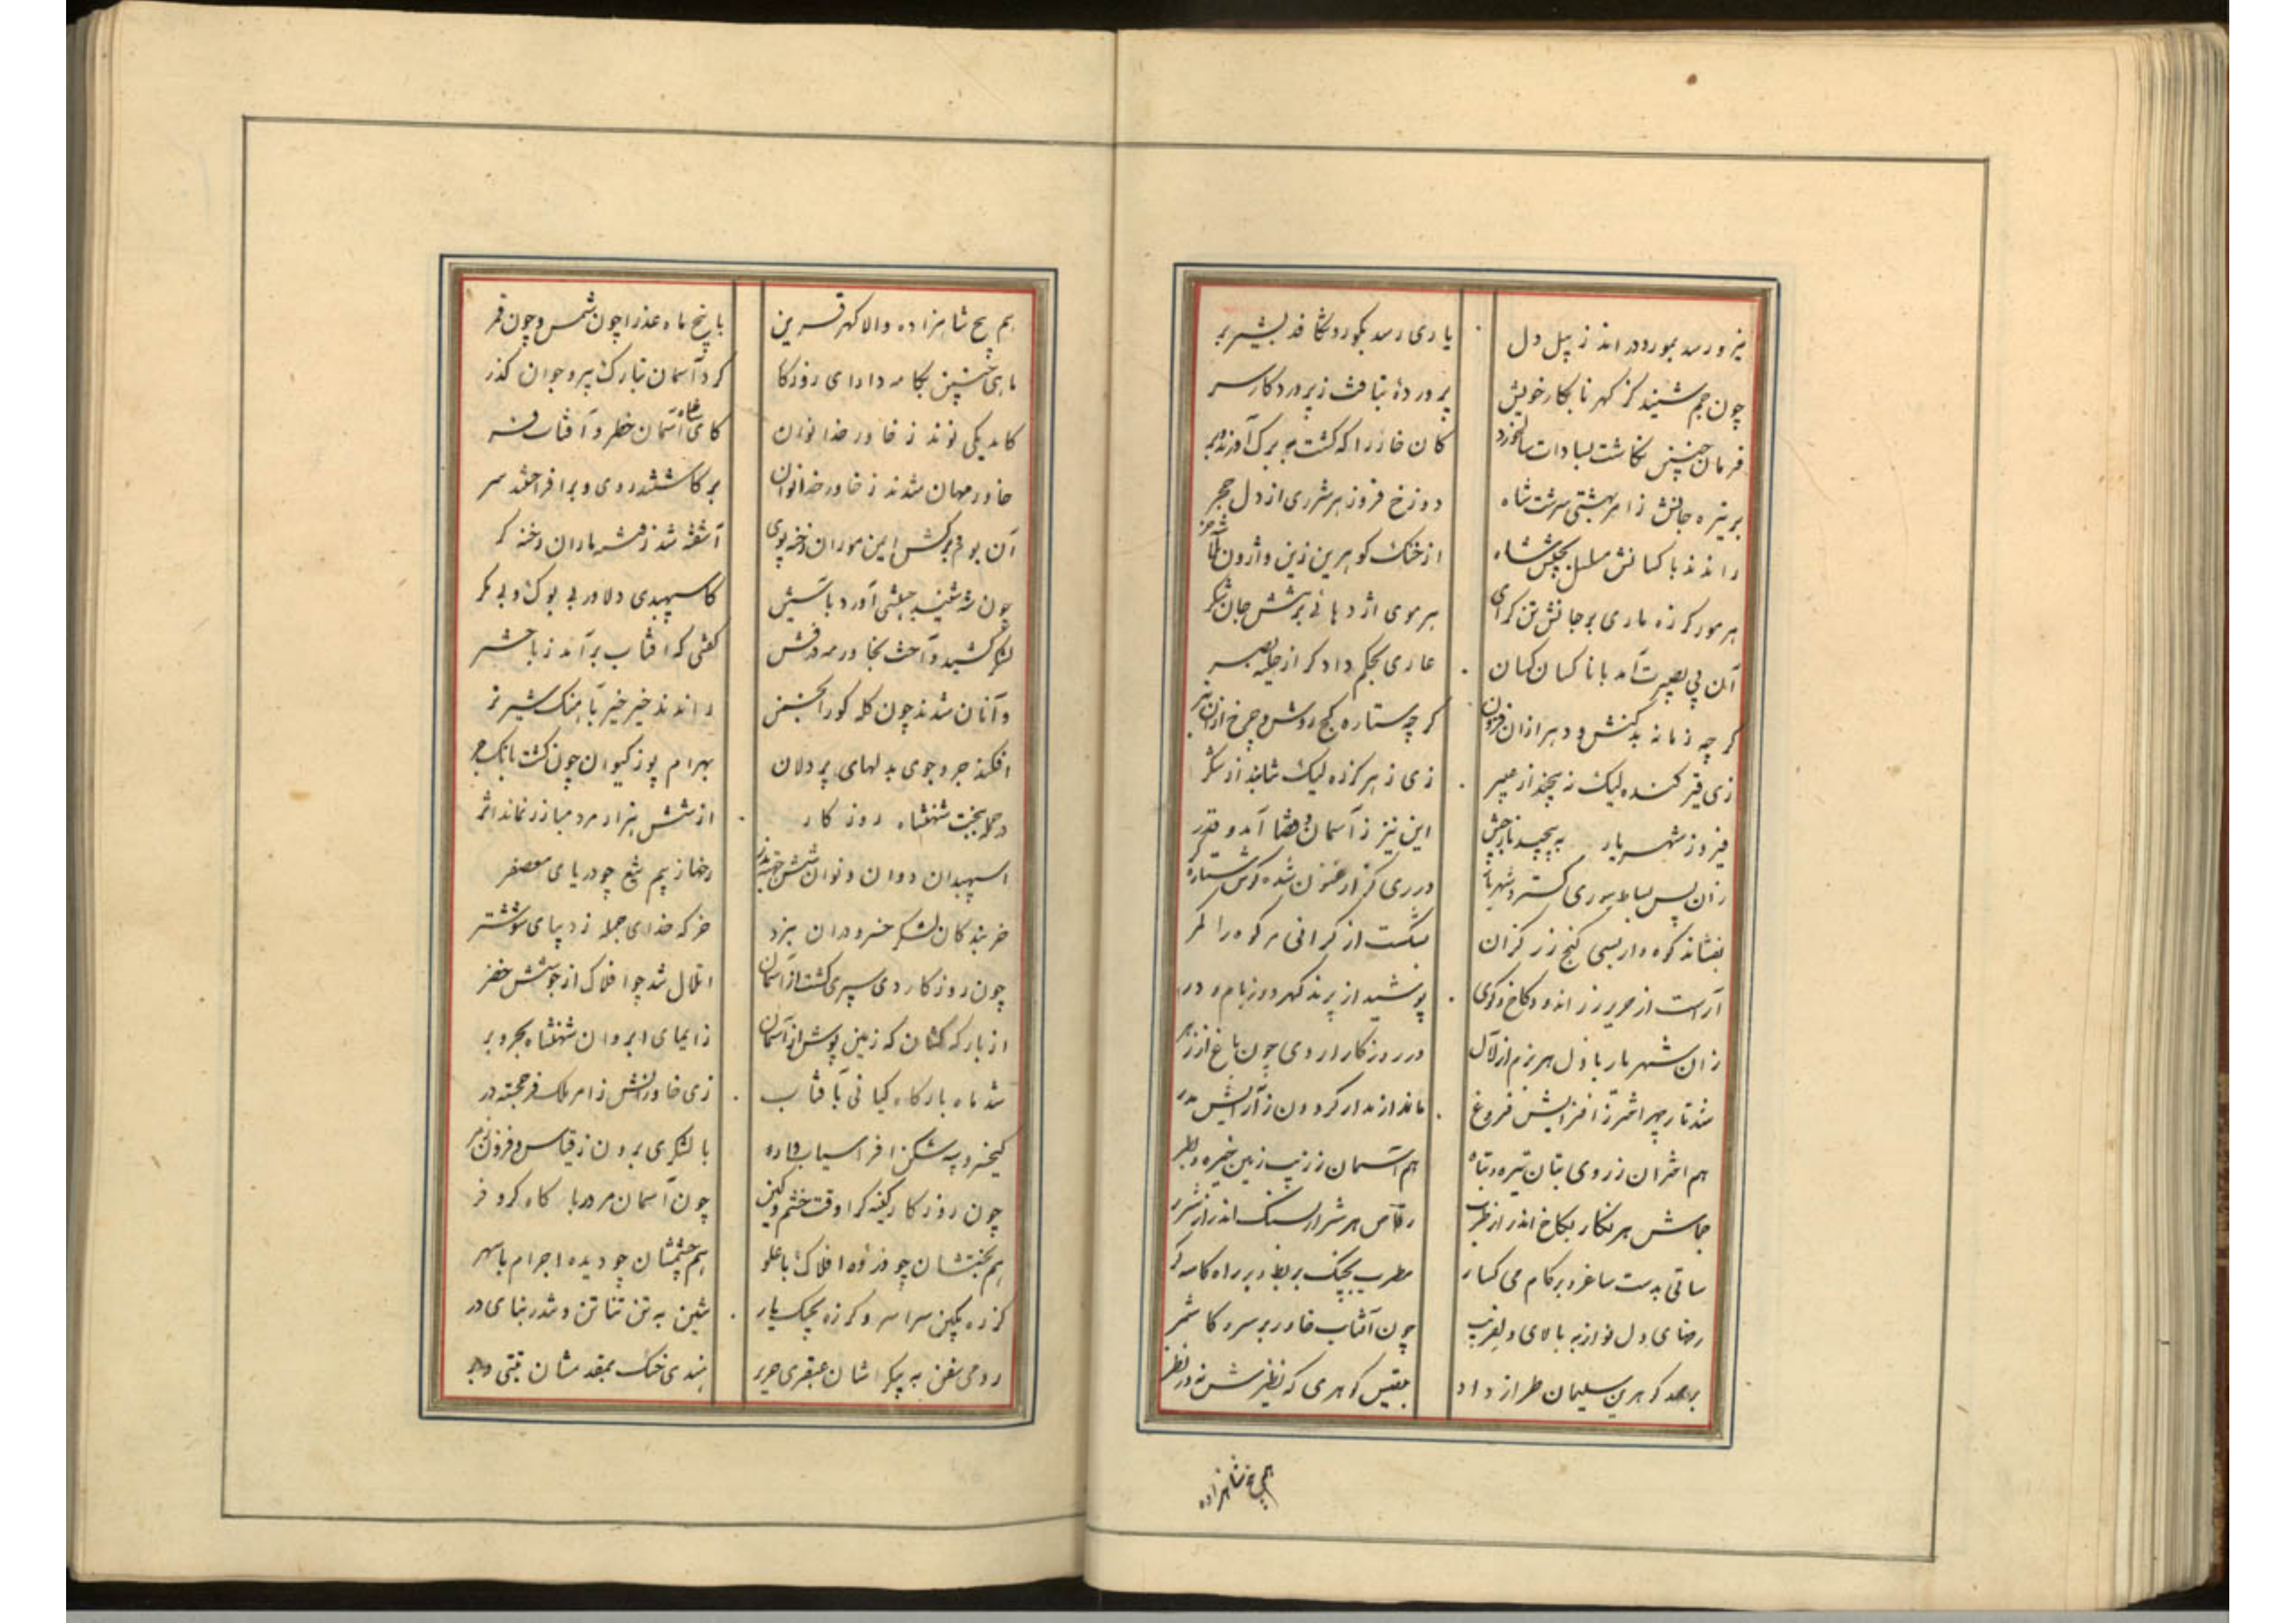 نیرو رسد بمور و در اند ز پیل دل
یاری رسد بکور و شکافد بشیر بر
چون جم شنید کز گهر نابکار خویش
پرورده تبافت ز پروردکار سر
فرمان چنین نکاشت بسادات سالخورد
کان خانرا که کشت به برک آورند بر
بر نیزه جانش ز امر بهشتی سرشت شاه
دوزخ فروز هر شرری از دل حجر
راندند با کسانش مسلسل بجیش شاه
از خنک کوهرین زین واژون
هر مور کرزه ماری بر جانش تن کرای
بر موی اژدهائی بر تنش جان شکر
آن بی بصیرت آمد با ناکسان کسان
عاری بحکم دادکر از حلیه بصر
کر چه زمانه بدکنش و دهر ازان فزون
کر چه ستاره کج روش و چرخ ازان بتر
زی قیر کننده لیک نپیچند از مسیر
زی زهر کرزه لیک شتابند از شکر
فیروز شهریار به پیچید
این نیز ز آسمان و قضا آمد و قدر
زان پس بساط سوری کسترد شهریار
در ری کز ارغنون شده کوش ستاره کر
بفشاند کوه وار بسی کنج زر کران
بشکست از کرانی مر کوه را کمر
آراست از حریر زر اندود کاخ و کوی
پوشید از پرند کهر دوز بام و در
زان شهریار باذل هر بزم از لآل
در روزکار اردی چون باغ از زهر
شد تار چهر اختر ز افزایش فروغ
ماند از مدار کردون ز آرایش مدر
هم اختران ز روی بتان تیره و تباه
هم آسمان ز زیب زمین خیره و بطر
جماش هر نکار بکاخ اندر از طرب
رقاص هر شرار بسنک اندر از شرر
ساقی بدست ساغر و بر کام می کسار
مطرب بچنک بربط و بر راه کاسه کر
رخسای دل نواز به بالای دلفریب
چون آفتاب خاور بر سرو کاشمر
بر مهد کوهرین سلیمان طراز داد
بلقیس کوهری که نظیرش نه در نظر
پنج شاهزاده
هم پنج شاهزاده والا کهر قرین
با پنج ماه عذرا چون شمس و چون قمر
ماهی چنین بکامه دارای روزکار
کرد آسمان تبارک پیر و جوان کذر
کامد یکی نوند ز خاور خدا نوان
کای شاه آسمان خطر و آفتاب فر
خاور مهان شدند ز خاور خدا نوان
برکاشتند روی و برافراختند سر
آن بوم بر کش ایمن موران رخنه پوی
آشفته شد ز فتنه ماران رخنه کر
چون شه شنید جیشی آورد باسیش
کاسپهبدی دلاور بی بوک و بی مکر
لشکر کشید و آخت بخاور مه درفش
کفتی که آفتاب برآمد ز باختر
و آنان شدند چون کله کور انجمن
راندند خیر خیر بآهنک شیر نر
افکند جر و جوی بدلهای پر دلان
بهرام پور کیوان چون کشت بانک جر
در حمله بخت شهنشاه روزکار
از شش هزار مرد مبارز نماند اثر
اسپهبدان دوان و نوان
رخها ز بیم تیغ چو دریای معصفر
خربندکان لشکر خسرو دران نبرد
خرکه خدای جمله ز دیبای شوشتر
چون روزکار دی سپری کشت از آسمان
اتلال شد چو افلاک از جوشش خضر
از بارکه کشان که زمین پوش از آسمان
ز ایمای ابروان شهنشاه بحر و بر
شد ماه بارکاه کیانی بآفتاب
زی خاورانش ز امر ملک فرخجسته در
کیخسرو پشنکن افراسیاب
با لشکری برون ز قیاس و فزون ز مر
چون روزکار کینه کرا وقت خشم و کین
چون آسمان مردربا کاه کر و فر
هم بختشان چو ذروه افلاک با علو
هم چشمشان چو دیده اجرام با سهر
کرزه بکین سراسر و کرزه بچنک یار
تنین به تن تناتن و تندر بنای در
رومی سفن به پیکرشان عبقری حریر
هندی خسک بمقعدشان تبتی وبر